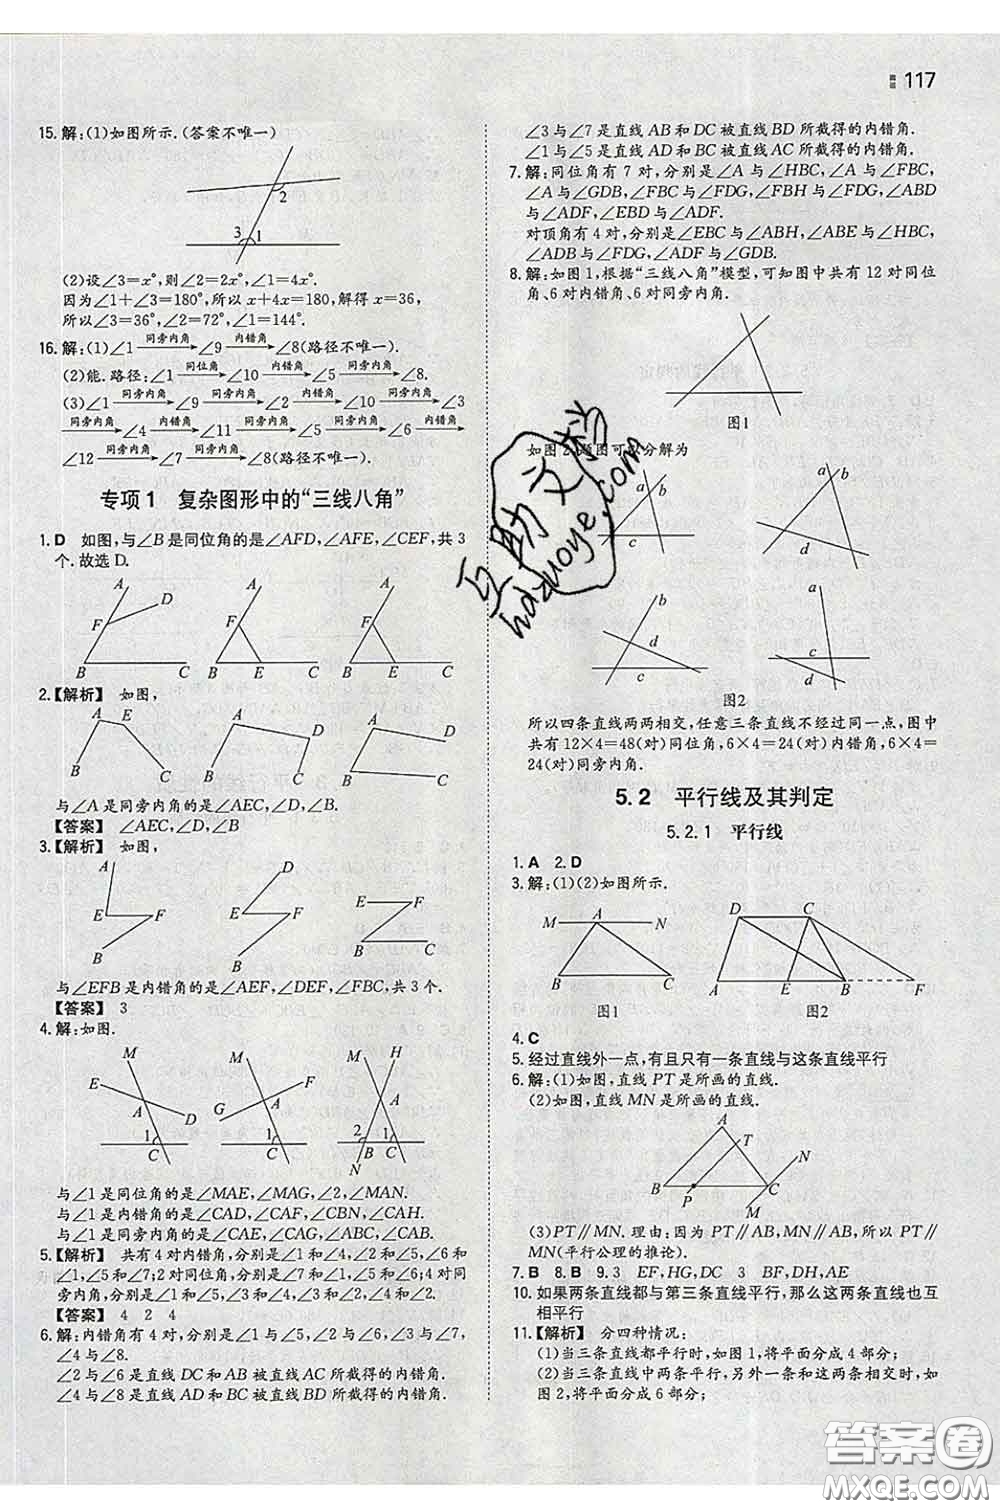 117
15.解:(1)如图所示.(答案不唯一)
2
3 1
(2)设∠3=x°,则∠2=2x°,∠1=4x°.
因为∠1+∠3=180°,所以x+4x=180,解得x=36,
所以∠3=36°,∠2=72°,∠1=144°.
16.解:(1)∠1 同旁内角 ∠9 内错角 ∠8(路径不唯一).
(2)能.路径:∠1 同位角 ∠10 内错角 ∠5 同旁内角 ∠8.
(3)∠1 同旁内角 ∠9 同旁内角 ∠2 内错角 ∠10 同旁内角 ∠3
同旁内角 ∠4 内错角 ∠11 同旁内角 ∠5 同旁内角 ∠6 内错角
∠12 同旁内角 ∠7 同旁内角 ∠8(路径不唯一).
专项1 复杂图形中的“三线八角”
1.D 如图,与∠B是同位角的是∠AFD,∠AFE,∠CEF,共3
个.故选D.
A D F B C
A F B E C
A F B E C
2.【解析】 如图,
A E B C
A D B
A D B C
与∠A是同旁内角的是∠AEC,∠D,∠B.
【答案】 ∠AEC,∠D,∠B
3.【解析】 如图,
A E F B
D E F B
E F B C
与∠EFB是内错角的是∠AEF,∠DEF,∠FBC,共3个.
【答案】 3
4.解:如图.
M E A D 1 C
M F A G 1 C
M H A 2 1 B C N
与∠1是同位角的是∠MAE,∠MAG,∠2,∠MAN.
与∠1是内错角的是∠DAC,∠CAF,∠CBN,∠CAH.
与∠1是同旁内角的是∠CAE,∠CAG,∠ABC,∠BAC.
5.【解析】 共有4对内错角,分别是∠1和∠4,∠2和∠5,∠6
和∠1,∠5和∠7;2对同位角,分别是∠7和∠1,∠5和∠6;4对同
旁内角,分别是∠1和∠5,∠3和∠4,∠3和∠2,∠4和∠2.
【答案】 4 2 4
6.解:内错角有4对,分别是∠2与∠6,∠1与∠5,∠3与∠7,
∠4与∠8.
∠2与∠6是直线DC和AB被直线AC所截得的内错角.
∠4与∠8是直线AD和BC被直线BD所截得的内错角.
∠3与∠7是直线AB和DC被直线BD所截得的内错角.
∠1与∠5是直线AD和BC被直线AC所截得的内错角.
7.解:同位角有7对,分别是∠A与∠HBC,∠A与∠FBC,
∠A与∠GDB,∠FBC与∠FDG,∠FBH与∠FDG,∠ABD
与∠ADF,∠EBD与∠ADF.
对顶角有4对,分别是∠EBC与∠ABH,∠ABE与∠HBC,
∠ADB与∠FDG,∠ADF与∠GDB.
8.解:如图1,根据“三线八角”模型,可知图中共有12对同位
角、6对内错角、6对同旁内角.
图1
如图2,题图可以分解为
a b c
a b d
b d c
a c d
图2
所以四条直线两两相交,任意三条直线不经过同一点,图中
共有12×4=48(对)同位角,6×4=24(对)内错角,6×4=24
(对)同旁内角.
5.2 平行线及其判定
5.2.1 平行线
1.A 2.D
3.解:(1)(2)如图所示.
M A N B C
图1
D C A E B F
图2
4.C
5.经过直线外一点,有且只有一条直线与这条直线平行
6.解:(1)如图,直线PT是所画的直线.
(2)如图,直线MN是所画的直线.
A T N B P C M
(3)PT∥MN.理由:因为PT∥AB,MN∥AB,所以PT∥
MN(平行公理的推论).
7.B 8.B 9.3 EF,HG,DC 3 BF,DH,AE
10.如果两条直线都与第三条直线平行,那么这两条直线也互
相平行
11.【解析】 分四种情况:
(1)当三条直线都平行时,如图1,将平面分成4部分;
(2)当三条直线中两条平行,另外一条和这两条相交时,如
图2,将平面分成6部分;
互助文档
hdzuoye.com
答案圈
MXQE.COM